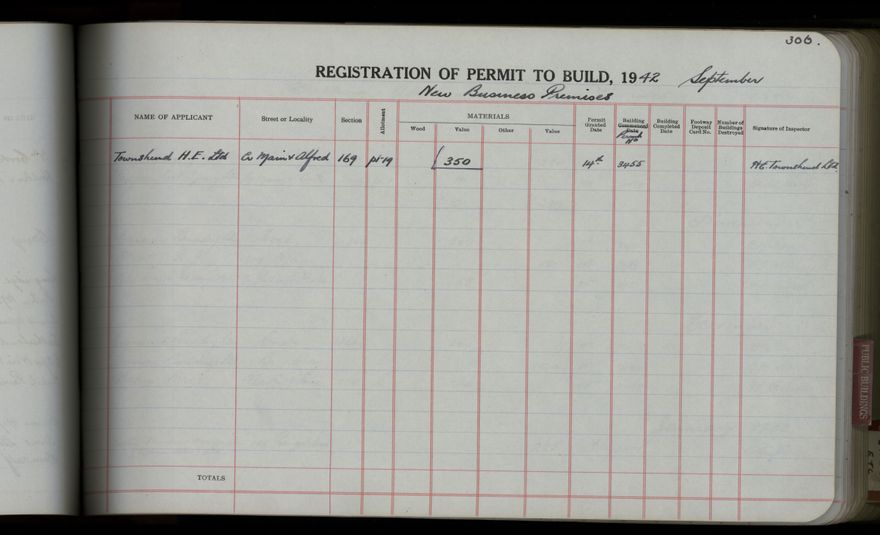 306.
REGISTRATION OF PERMIT TO BUILD, 1942 September
New Business Premises
NAME OF APPLICANT
Street or Locality
Section
Allotment
MATERIALS
Wood
Value
Other
Value
Permit Granted Date
Building Commenced Date Permit No
Building Completed Date
Footway Deposit Card No.
Number of Buildings Destroyed
Signature of Inspector
Townshend H.E. Ltd Cr Main & Alfred 169 pt 19 350 14th 3455 H.E. Townshend Ltd
TOTALS
PUBLIC BUILDINGS